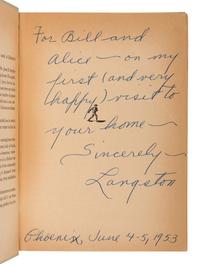 For Bill and
Alice — on my
first (and very
happy) visit to
your home —
Sincerely —
Langston
Phoenix, June 4-5, 1953